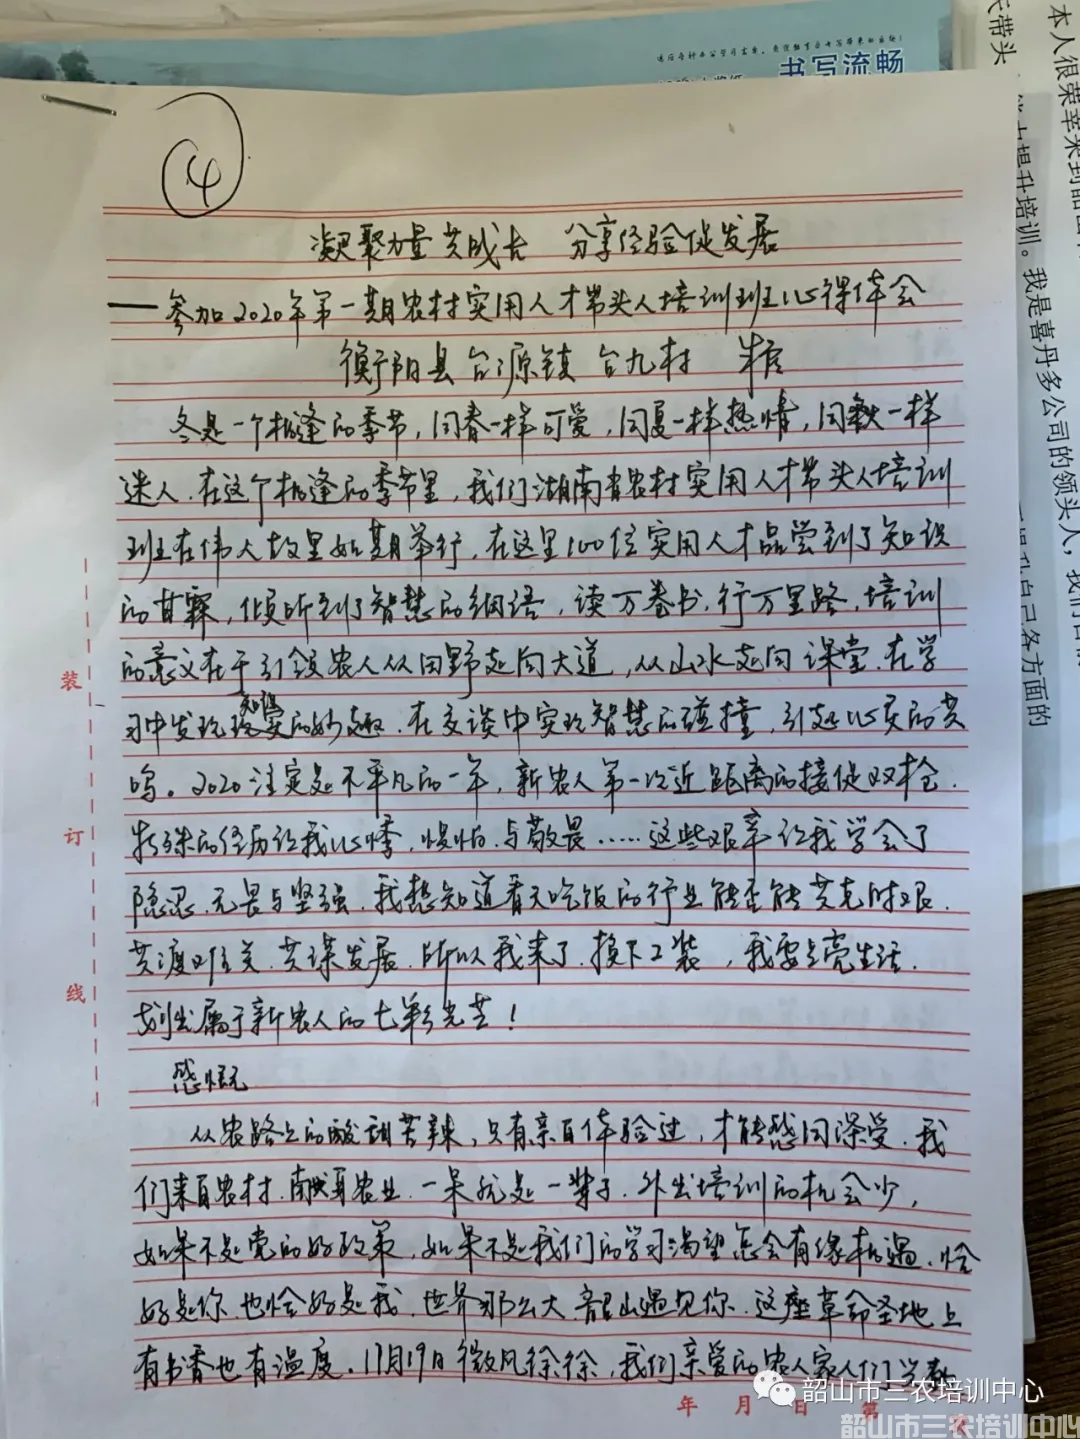 书写流畅
本人很荣幸来到韶山
氏带头
能力提升培训。我是喜丹多公司的领头人，我们
提升自己各方面的
14
凝聚力量共成长 分享经验促发展
——参加2020年第一期农村实用人才带头人培训班心得体会
衡阳县台源镇台九村
冬是一个相逢的季节，同春一样可爱，同夏一样热情，同秋一样
迷人．在这个相逢的季节里，我们湖南省农村实用人才带头人培训
班在伟人故里如期举行．在这里100位实用人才品尝到了知识
的甘霖，倾听到了智慧的细语，读万卷书．行万里路．培训
的意义在于引领农人从田野走向大道，从山水走向课堂．在学
习中发现知识的妙趣．在交谈中实现智慧的碰撞，引起心灵的共
鸣。2020注定是不平凡的一年，新农人第一次近距离的接促双抢．
特殊的经历让我心悸，惧怕．与敬畏……这些艰辛让我学会了
隐忍．无畏与坚强．我想知道看天吃饭的行业能否能共克时艰．
共渡难关．共谋发展．所以我来了．换下工装，我要点亮生活．
划出属于新农人的七彩光芒！
感悟
从农路上的酸甜苦辣，只有亲自体验过，才能感同深受．我
们来自农村．献身农业．一呆就是一辈子．外出培训的机会少，
如果不是党的好政策，如果不是我们的学习渴望怎会有缘相遇．恰
好是你．也恰好是我．世界那么大．韶山遇见你．这座革命圣地上
有书香也有温度．11月19日微风徐徐，我们亲爱的农人家人们
装
订
线
年 月 日 第
韶山市三农培训中心
韶山市三农培训中心